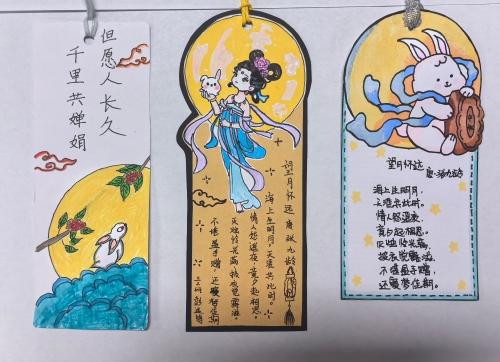 但愿人长久
千里共婵娟
望月怀远 唐 张九龄
海上生明月，天涯共此时。
情人怨遥夜，竟夕起相思。
灭烛怜光满，披衣觉露滋。
不堪盈手赠，还寝梦佳期
望月怀远
唐·张九龄
海上生明月，
天涯共此时。
情人怨遥夜，
竟夕起相思。
灭烛怜光满，
披衣觉露滋。
不堪盈手赠，
还寝梦佳期。